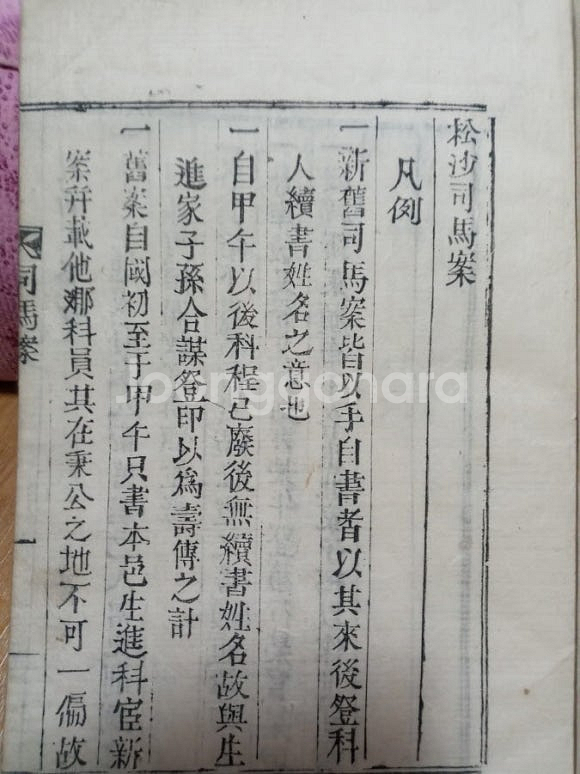 松沙司馬案
凡例
一新舊司馬案皆以手自書者以其來後登科
人續書姓名之意也
一自甲午以後科程已廢後無續書姓名故與生
進家子孫合謀登印以爲壽傳之計
一舊案自國初至于甲午只書本邑生進科宦新
案幷載他鄕科員其在秉公之地不可一偏故
司馬案
joonggonara